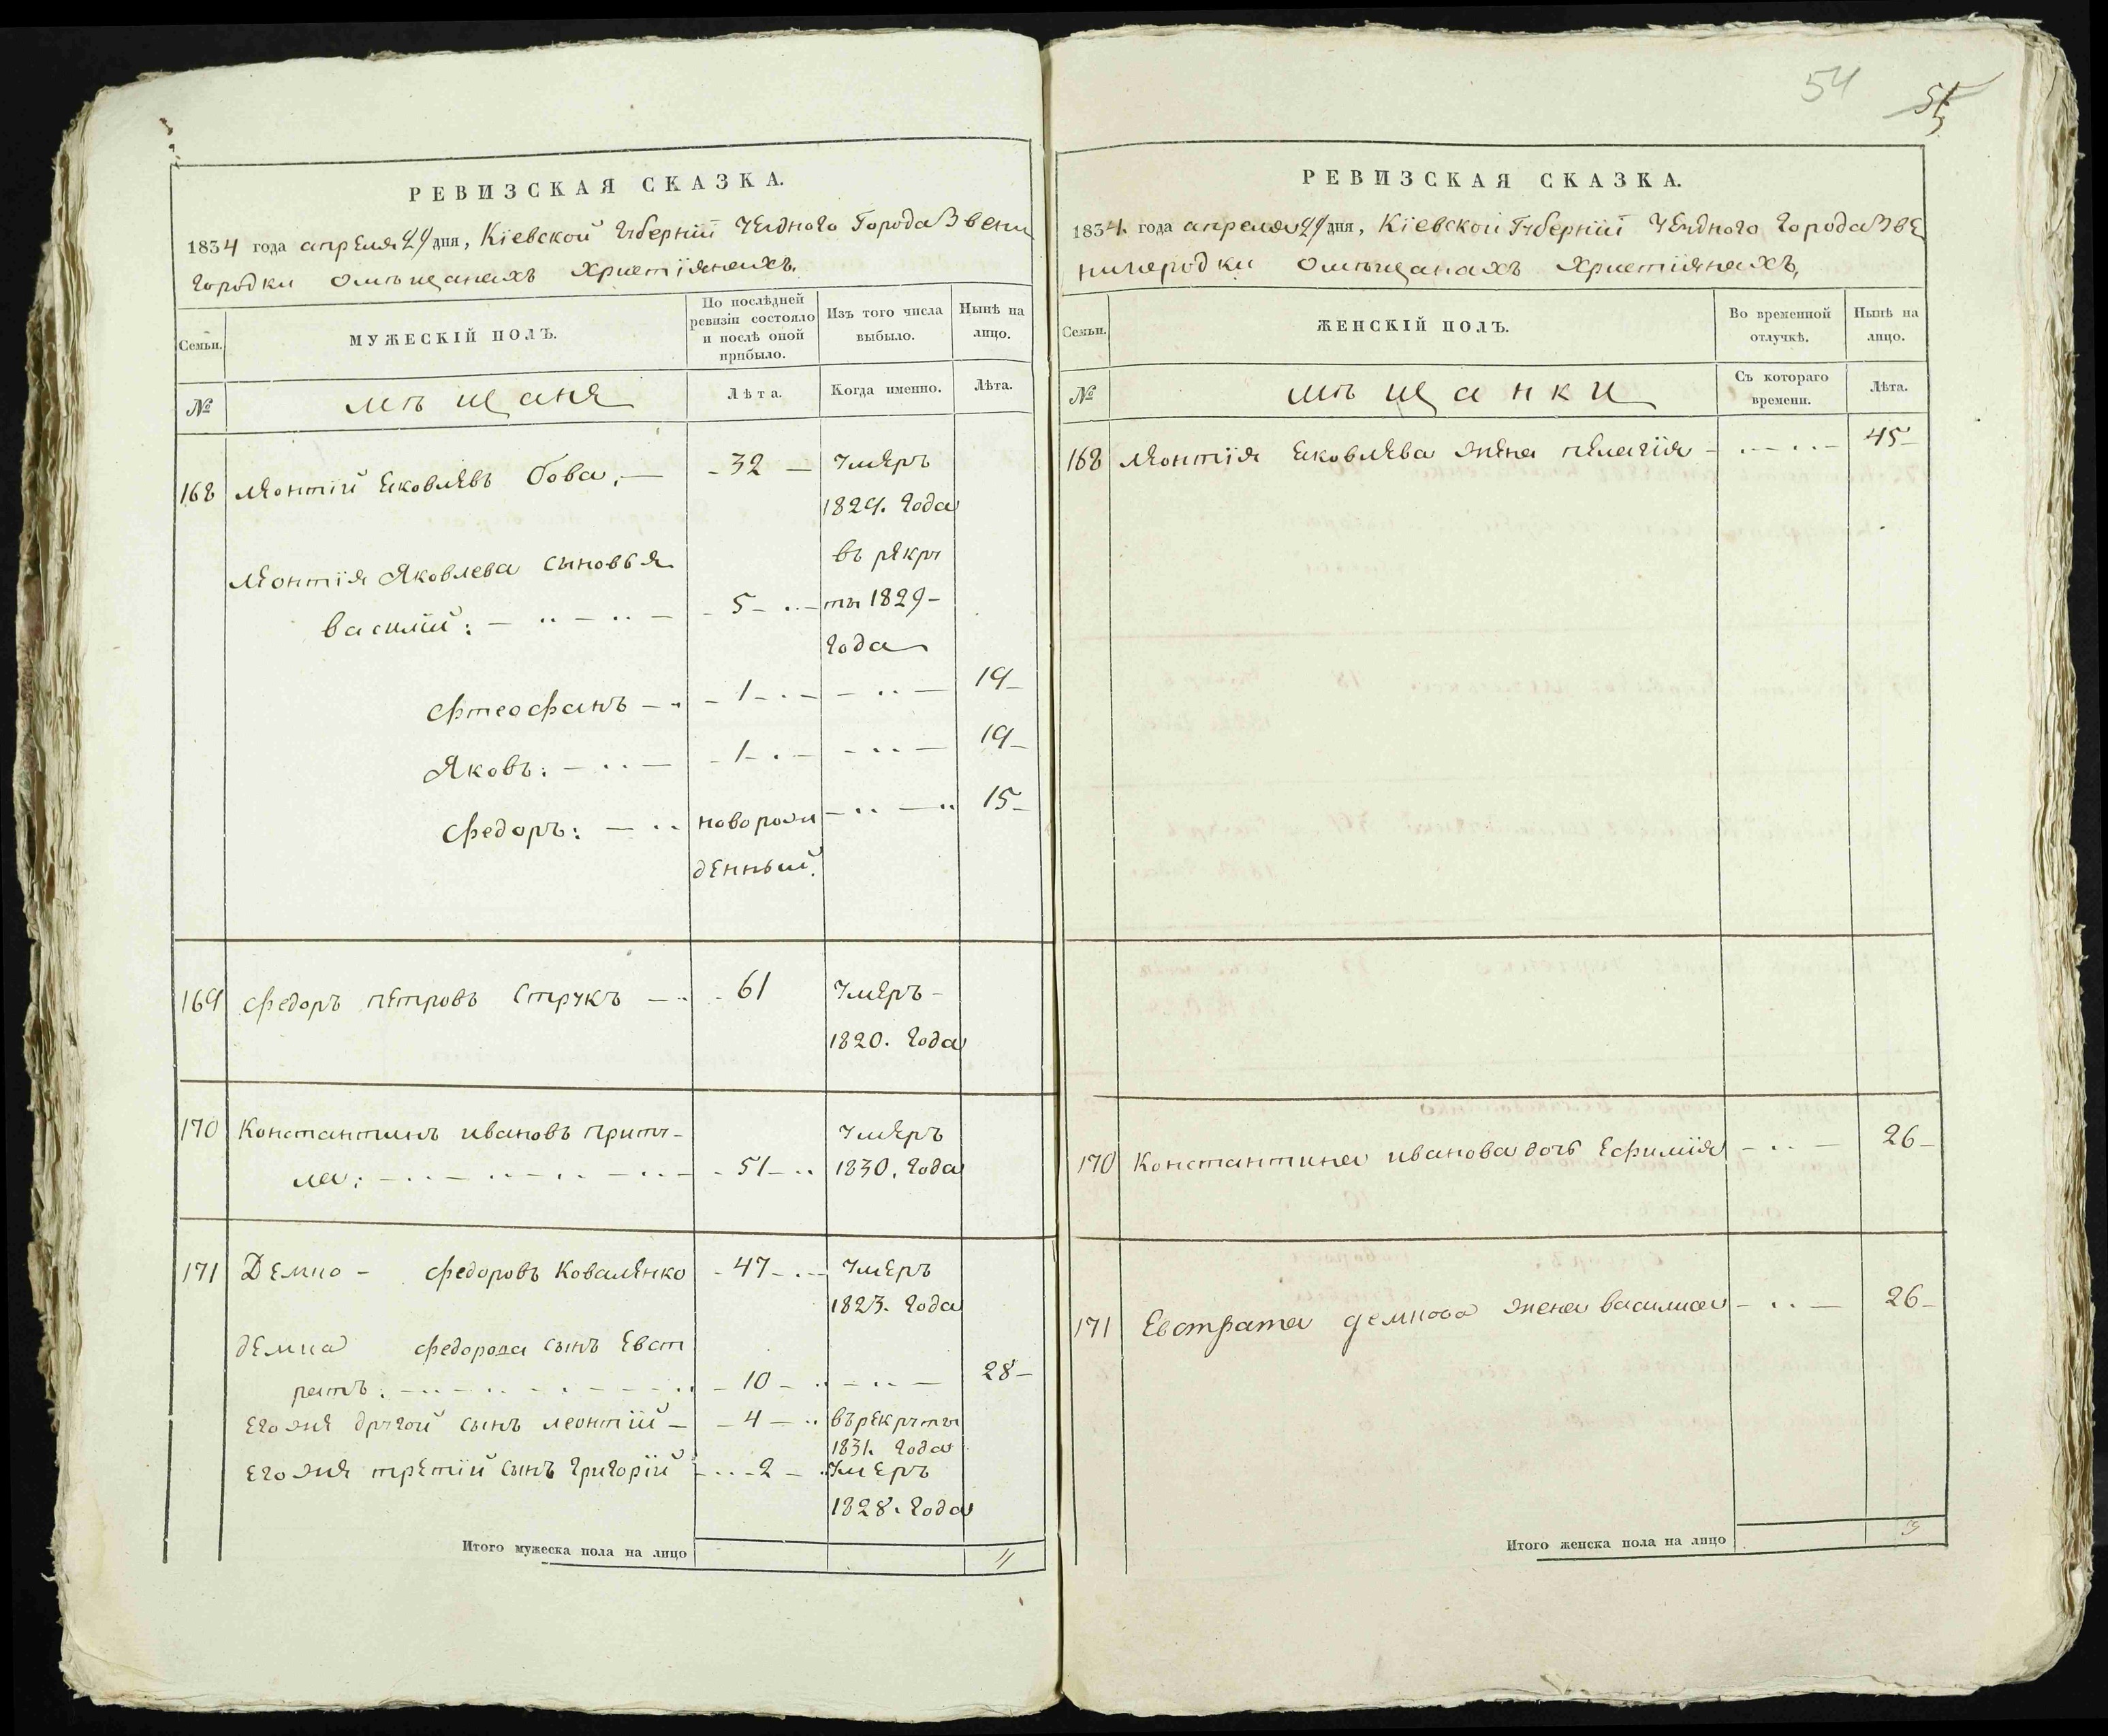 54
РЕВИЗСКАЯ СКАЗКА.
1834 года апреля 29 дня, Кіевской Губерніи Уезднаго Города Звени
городки омѣщанахъ христіянахъ.
Семьи.
МУЖЕСКІЙ ПОЛЪ.
По послѣдней ревизіи состояло и послѣ оной прибыло.
Изъ того числа выбыло.
Нынѣ на лицо.
№
мѣщане
Лѣта.
Когда именно.
Лѣта.
168 Леонтій Яковлевъ Бова. — 32 — Умеръ
1829. Года
Леонтія Яковлева сыновья въ рекру
Василій: — 5 — ты 1829 —
Года
Фтеофанъ — 1 — 19 —
Яковъ: — 1 — 19 —
Федоръ: — новорож — 15 —
денный.
169 Федоръ Петровъ Струкъ — 61 Умеръ —
1820. Года
170 Константинъ Ивановъ Приту — Умеръ
ла: — 51 — 1830. Года
171 Демко — Федоровъ Коваленко — 47 — Умеръ
1823. Года
Демка Федорова сынъ Евст
ратъ: — 10 — 28 —
Егоже другой сынъ Леонтій — 4 — въ рекруты
1831. Года
Егоже третій сынъ Григорій — 2 — Умеръ
1828. Года
Итого мужеска пола на лицо 4
РЕВИЗСКАЯ СКАЗКА.
1834 года апреля 29 дня, Кіевской Губерніи Уезднаго Города Зве
нигородки омѣщанахъ христіянахъ,
Семьи.
ЖЕНСКІЙ ПОЛЪ.
Во временной отлучкѣ.
Нынѣ на лицо.
№
мѣщанки
Съ котораго времени.
Лѣта.
168 Леонтія Яковлева жена Пелагія — 45 —
170 Константина Иванова дочь Ефимія — 26 —
171 Евстрата Демкова жена Василиса — 26 —
Итого женска пола на лицо 3